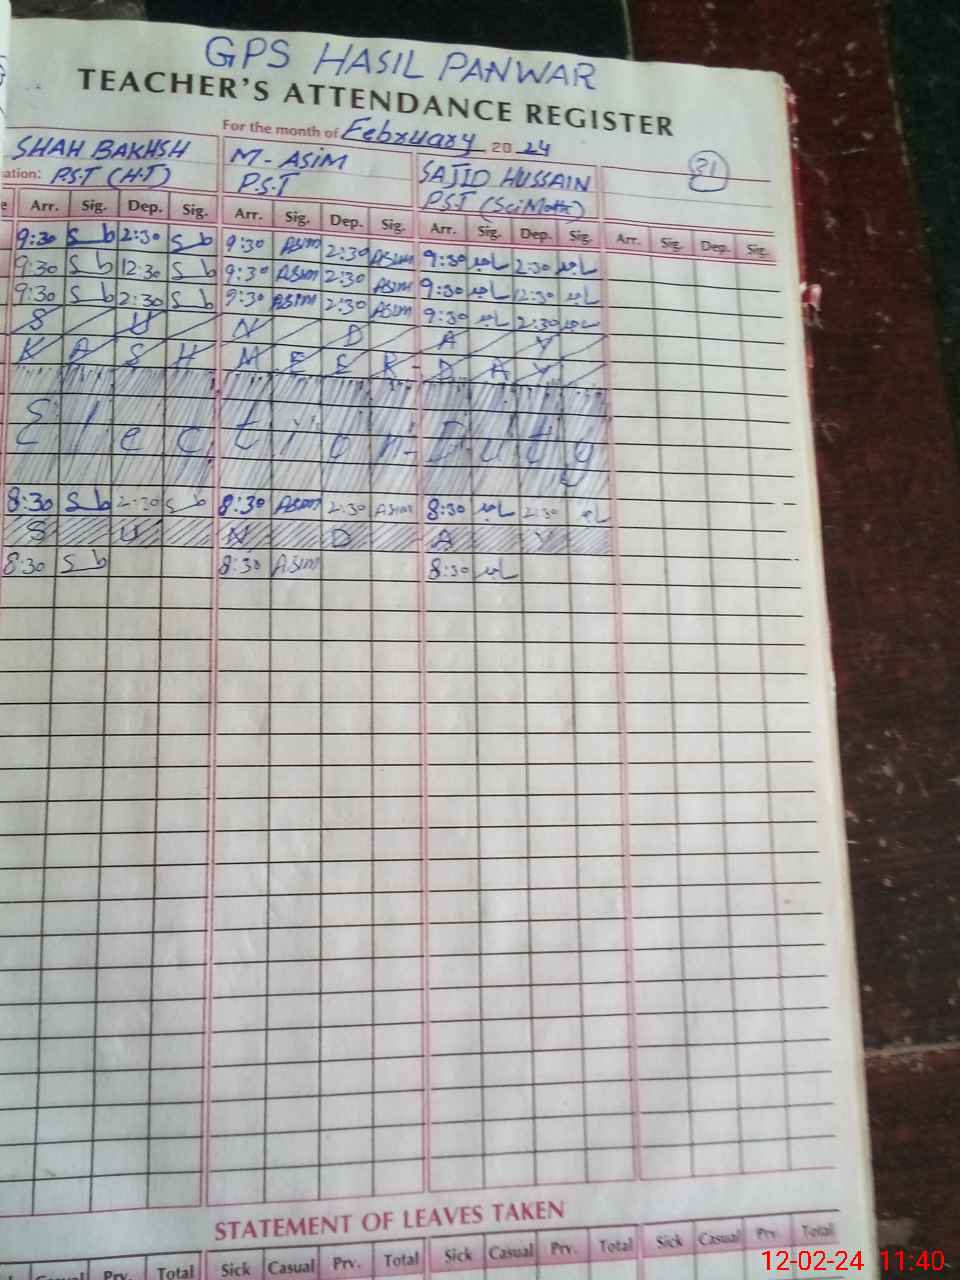 GPS HASIL PANWAR
TEACHER'S ATTENDANCE REGISTER
For the month of February 20 24
SHAH BAKHSH M- ASIM SAJID HUSSAIN 31
ation: P.S.T (H.T) P.S.T PST (Sci Math)
e Arr. Sig. Dep. Sig. Arr. Sig. Dep. Sig. Arr. Sig. Dep. Sig. Arr. Sig. Dep. Sig.
9:30 Sb 2:30 Sb 9:30 Asim 2:30 Asim 9:30 2:30
9:30 Sb 12:30 Sb 9:30 Asim 2:30 Asim 9:30 12:30
9:30 Sb 2:30 Sb 9:30 Asim 2:30 Asim 9:30 2:30
S U N D A Y
K A S H M E E R - D A Y
Election-Duty
8:30 Sb 2:30 Sb 8:30 Asim 2:30 Asim 8:30 2:30
S U N D A Y
8:30 Sb 8:30 Asim 8:30
STATEMENT OF LEAVES TAKEN
Casual Prv. Total Sick Casual Prv. Total Sick Casual Prv. Total Sick Casual Prv. Total
12-02-24 11:40